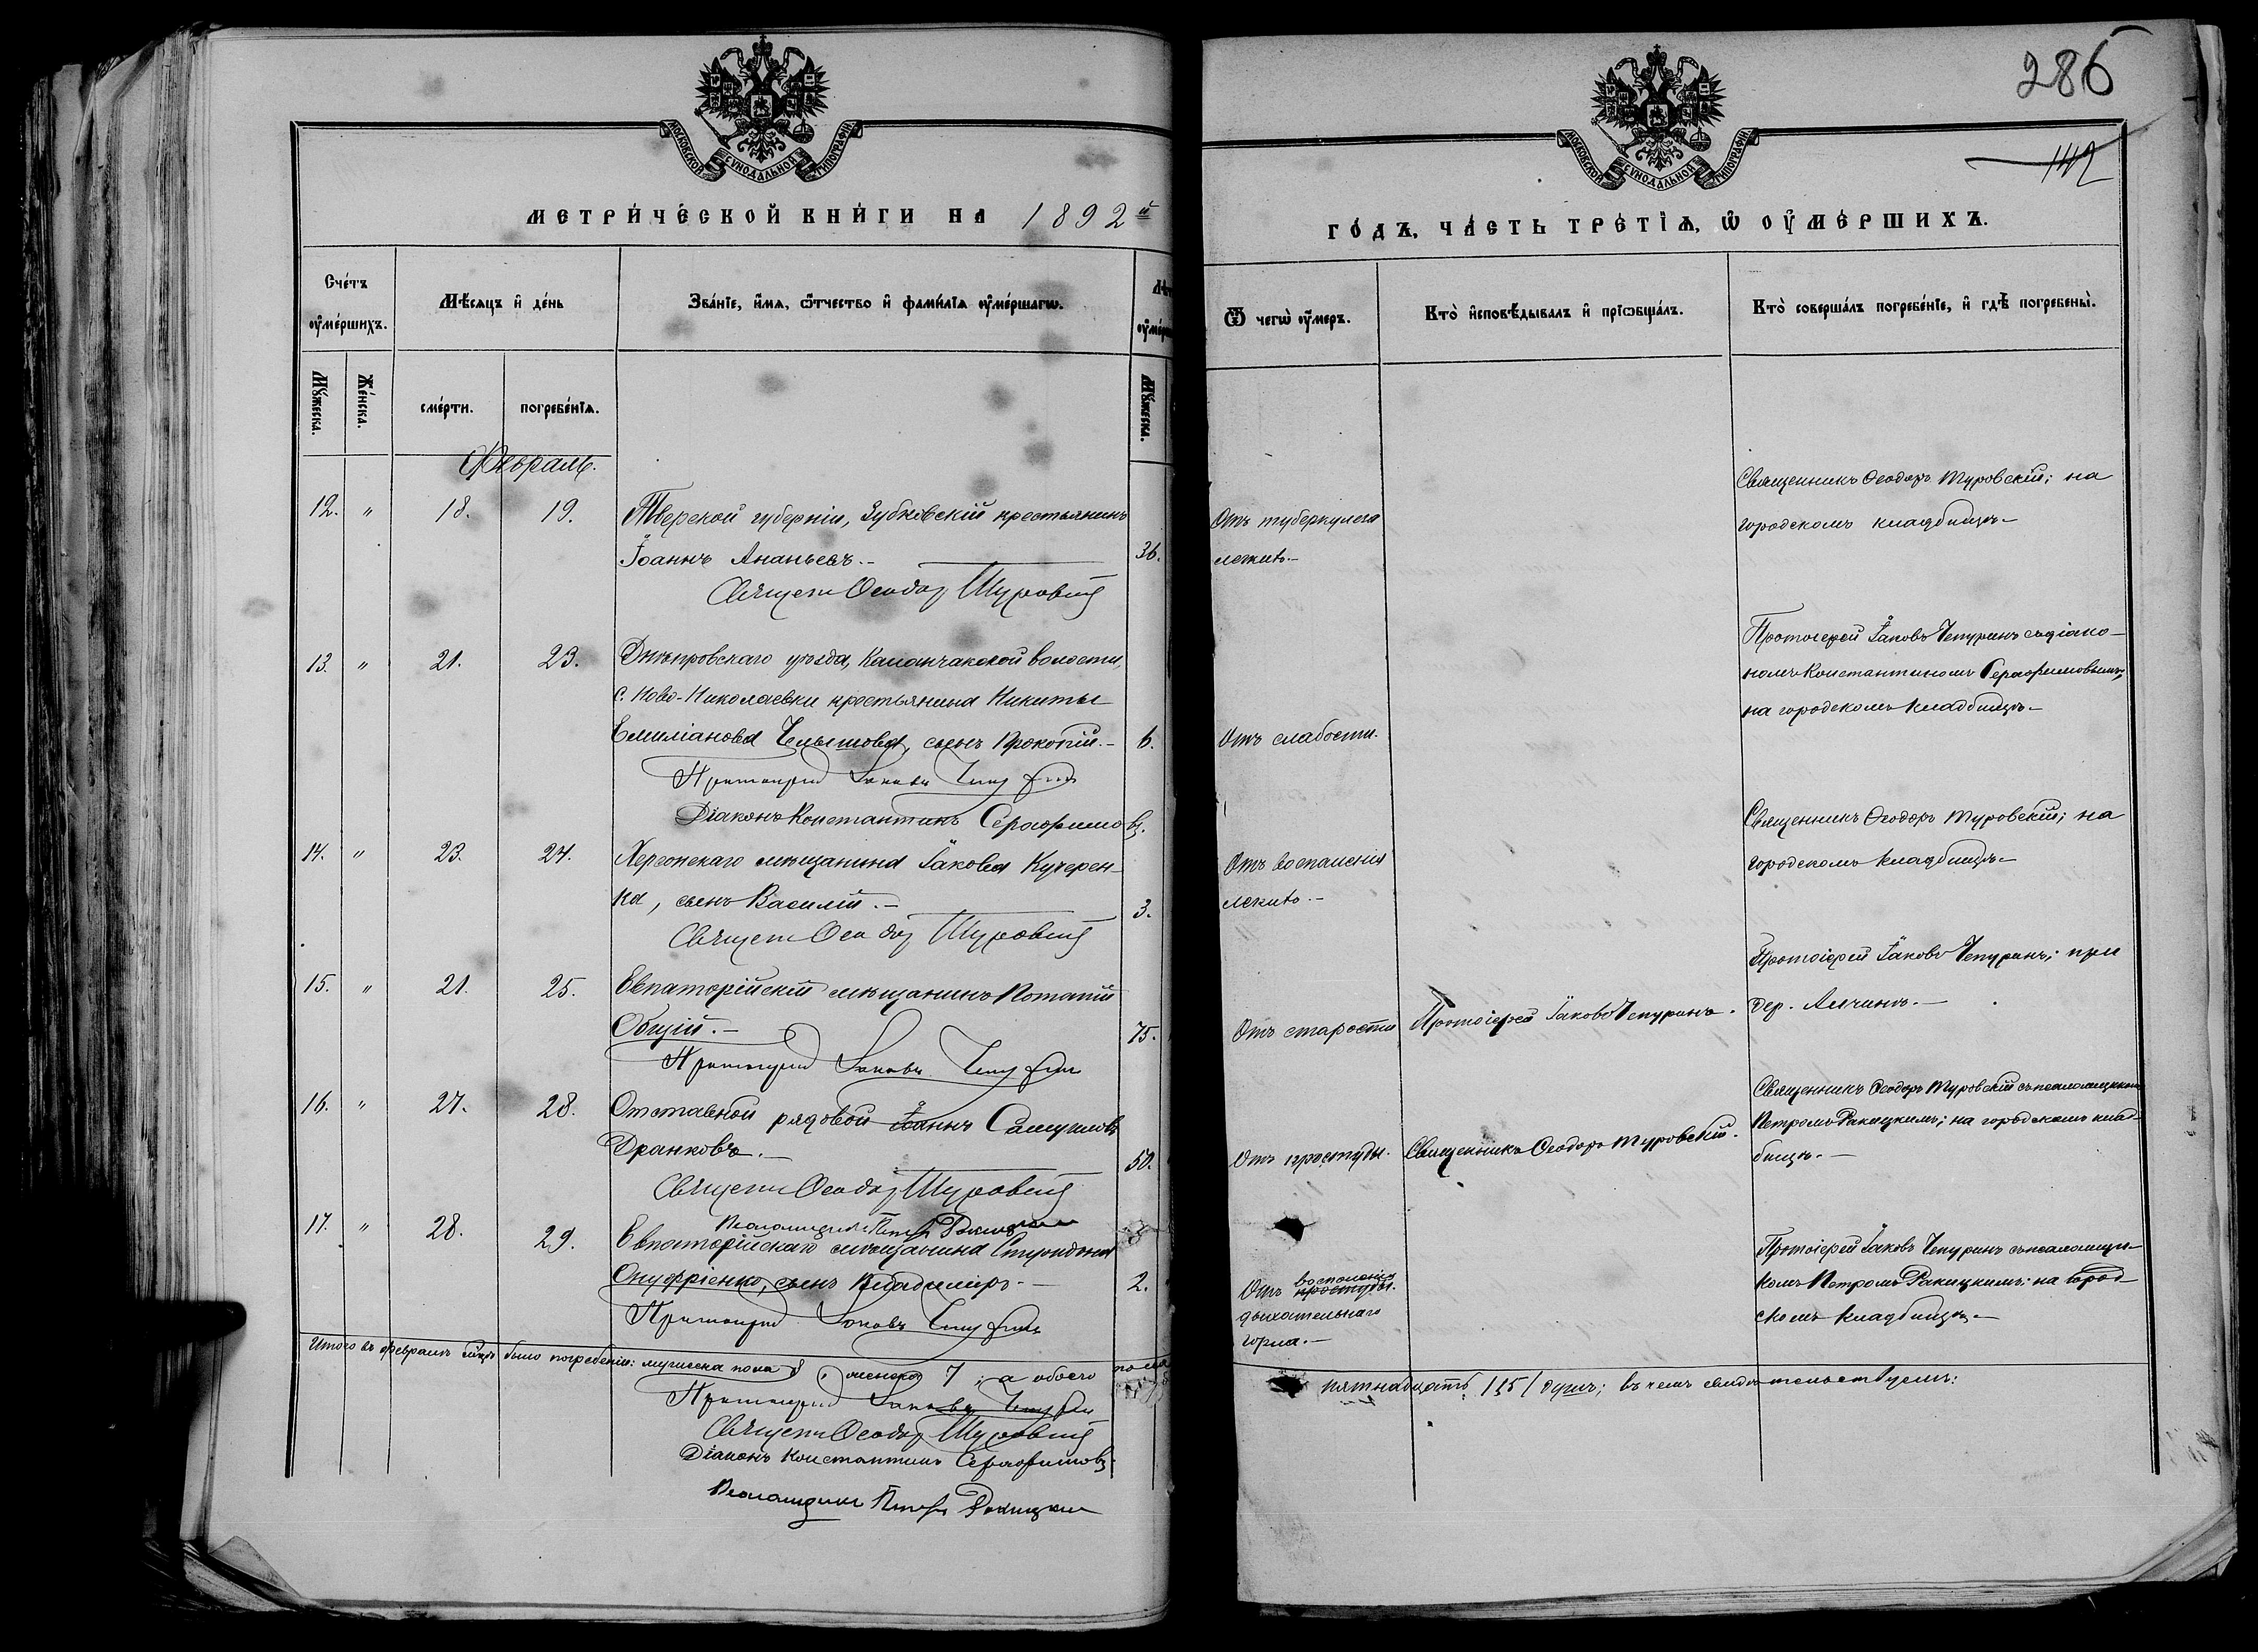 МОСКОВСКОЙ СУНОДАЛЬНОЙ ТИПОГРАФІИ
МЕТРИЧЕСКОЙ КНИГИ НА 1892й
Счетъ умершихъ.
Мѣсяцъ и день
Званіе, имя, отчество и фамилія умершаго.
Мужеска.
Женска.
смерти.
погребенія.
Мужеска.
Февраль.
12. " 18. 19. Тверской губерніи, Зубковскій крестьянинъ
Іоаннъ Ананьевъ.- 36.
Священ Ѳеодор Туровскій
13. " 21. 23. Днѣпровскаго уѣзда, Каланчакской волости,
с. Ново-Николаевки крестьянина Никиты
Емиліанова Челышова, сынъ Прокопій.- 6.
Протоіерей Іаковъ Чепуринъ
Діаконъ Константинъ Серафимовъ.
14. " 23. 24. Херсонскаго мѣщанина Іакова Кучерен-
ка, сынъ Василій.- 3.
Священ Ѳеодор Туровскій
15. " 21. 25. Евпаторійскій мѣщанинъ Потапій
Общій.- 75.
Протоіерей Іаковъ Чепуринъ
16. " 27. 28. Отставной рядовой Іоаннъ Самуиловъ
Дранковъ.- 50.
Священ Ѳеодор Туровскій
Псаломщикъ Петръ Ракицкій
17. " 28. 29. Евпаторійскаго мѣщанина Спиридона
Онуфріенко, сынъ Владиміръ.- 2.
Протоіерей Іаковъ Чепуринъ
Итого въ февралѣ мѣсяцѣ было погребеніи: мужеска пола 8, женска 7; а обоего пола
Протоіерей Іаковъ Чепуринъ
Священ Ѳеодор Туровскій
Діаконъ Константинъ Серафимовъ.
Псаломщикъ Петръ Ракицкій
286
142
МОСКОВСКОЙ СУНОДАЛЬНОЙ ТИПОГРАФІИ
ГОДЪ, ЧАСТЬ ТРЕТІЯ, Ѡ УМЕРШИХЪ.
Ѿ чего умеръ.
Кто исповѣдывалъ и пріобщалъ.
Кто совершалъ погребеніе, и гдѣ погребены.
Священникъ Ѳеодоръ Туровскій; на
городскомъ кладбищѣ.-
Отъ туберкулеза
легкихъ.-
Протоіерей Іаковъ Чепуринъ съ діако-
номъ Константиномъ Серафимовымъ;
на городскомъ кладбищѣ.-
Отъ слабости.
Священникъ Ѳеодоръ Туровскій; на
городскомъ кладбищѣ.-
Отъ воспаленія
легкихъ.-
Протоіерей Іаковъ Чепуринъ; при
дер. Алчинъ.-
Отъ старости
Протоіерей Іаковъ Чепуринъ.
Священникъ Ѳеодоръ Туровскій съ псаломщикомъ
Петромъ Ракицкимъ; на городскомъ клад-
бищѣ.-
Отъ простуды.
Священникъ Ѳеодоръ Туровскій.
Протоіерей Іаковъ Чепуринъ съ псаломщи-
комъ Петромъ Ракицкимъ: на город-
скомъ кладбищѣ.-
воспаленія
Отъ простуды.
дыхательнаго
горла.-
пятнадцать /15/ душъ; въ чемъ свидѣтельствуемъ: